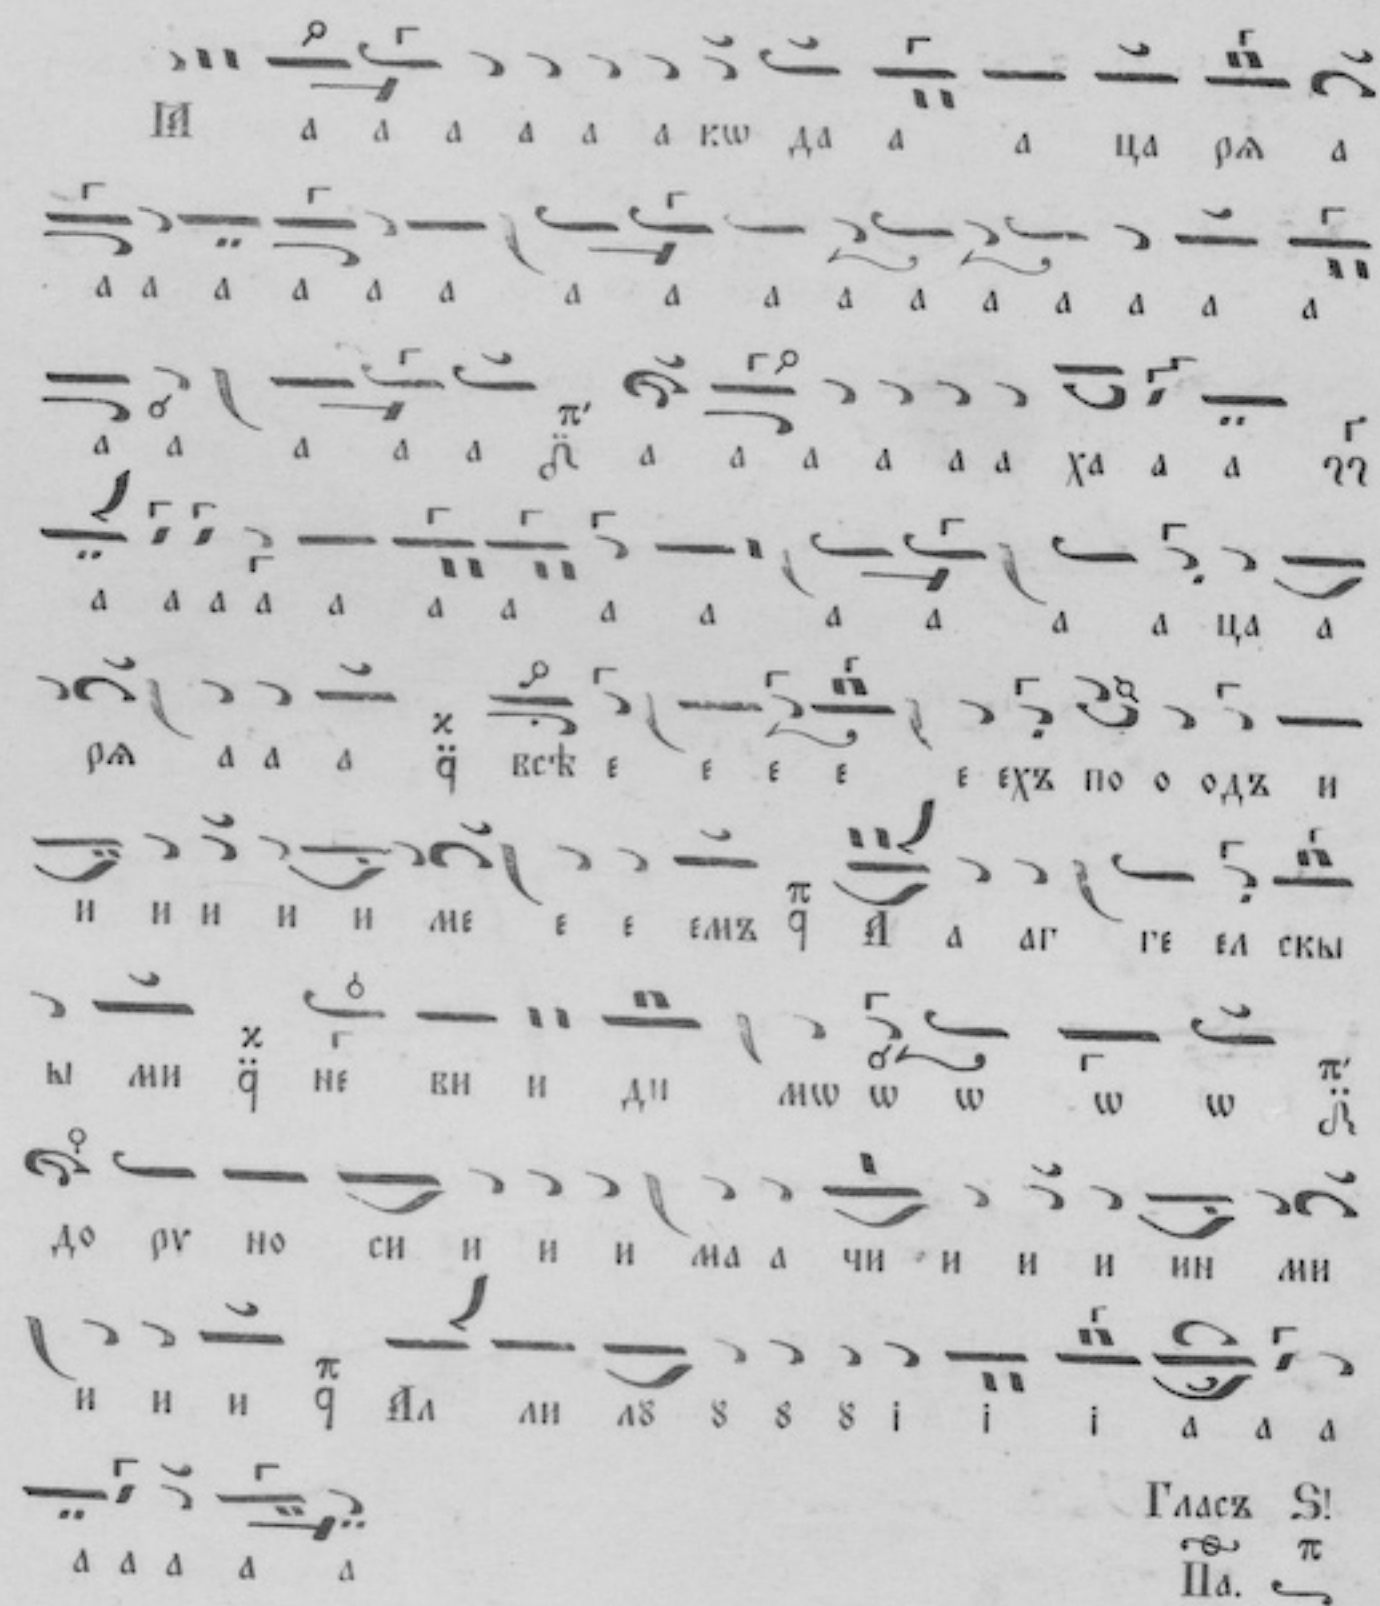 Ꙗ а а а а а а кѡ да а а ца рѧ а
а а а а а а а а а а а а а а а а
а а а а а π' а а а а а а ха а а
а а а а а а а а а а а а а ца а
рѧ а а а ϰ q̈ всѣ е е е е е ехъ по о одъ и
и и и и и ме е е емъ π q А а аг ге ел скы
ы ми ϰ q̈ не ви и ди мѡ ѡ ѡ ѡ ѡ π'
до рѵ но си и и и ма а чи и и и ин ми
и и и π q Ал ли лꙋ ꙋ ꙋ ꙋ і і і а а а
а а а а а Гласъ Ѕ! π
Па.